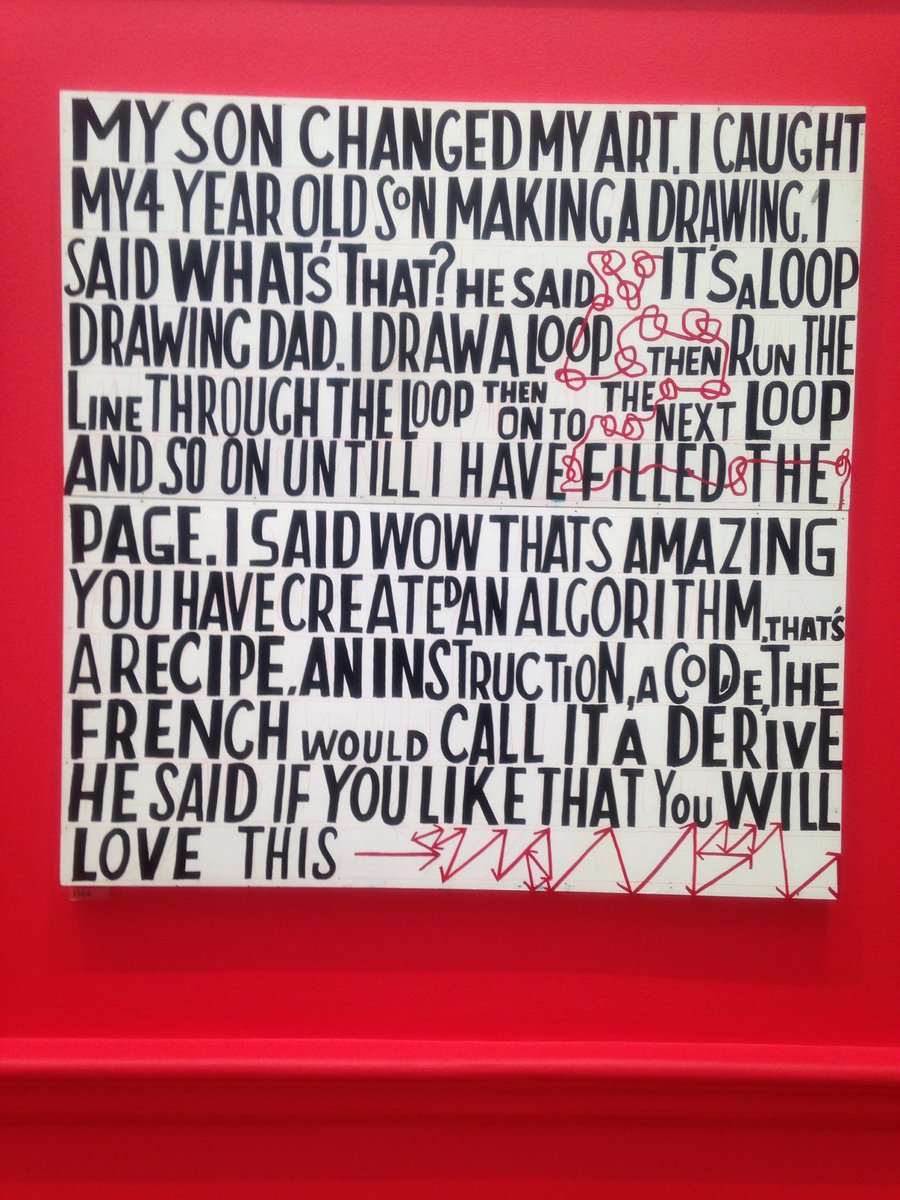 MY SON CHANGED MY ART. I CAUGHT
MY 4 YEAR OLD SON MAKING A DRAWING. I
SAID WHAT'S THAT? HE SAID IT'S A LOOP
DRAWING DAD. I DRAW A LOOP THEN RUN THE
LINE THROUGH THE LOOP THEN ON TO THE NEXT LOOP
AND SO ON UNTILL I HAVE FILLED THE
PAGE. I SAID WOW THATS AMAZING
YOU HAVE CREATED AN ALGORITHM. THAT'S
A RECIPE. AN INSTRUCTION, A CODE, THE
FRENCH WOULD CALL IT A DERIVE
HE SAID IF YOU LIKE THAT YOU WILL
LOVE THIS